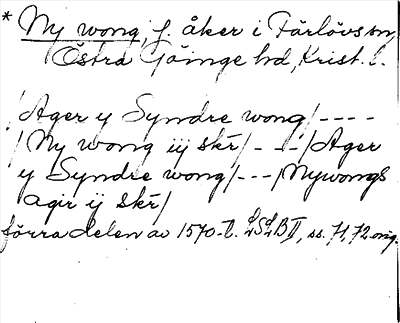 * Ny wong, f. åker i Färlövs sn,
Östra Göinge hd, Krist. l.
/Ager y Syndre wong/----
/Ny wong iij skr̄/---/Ager
y Syndre wong/---/Nywongs
agir ij skr̄/
förra delen av 1570-t. LSLB II, ss. 71, 72 orig.